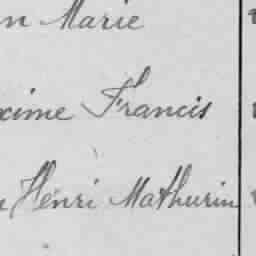 n Marie
xime Francis
Henri Mathurin